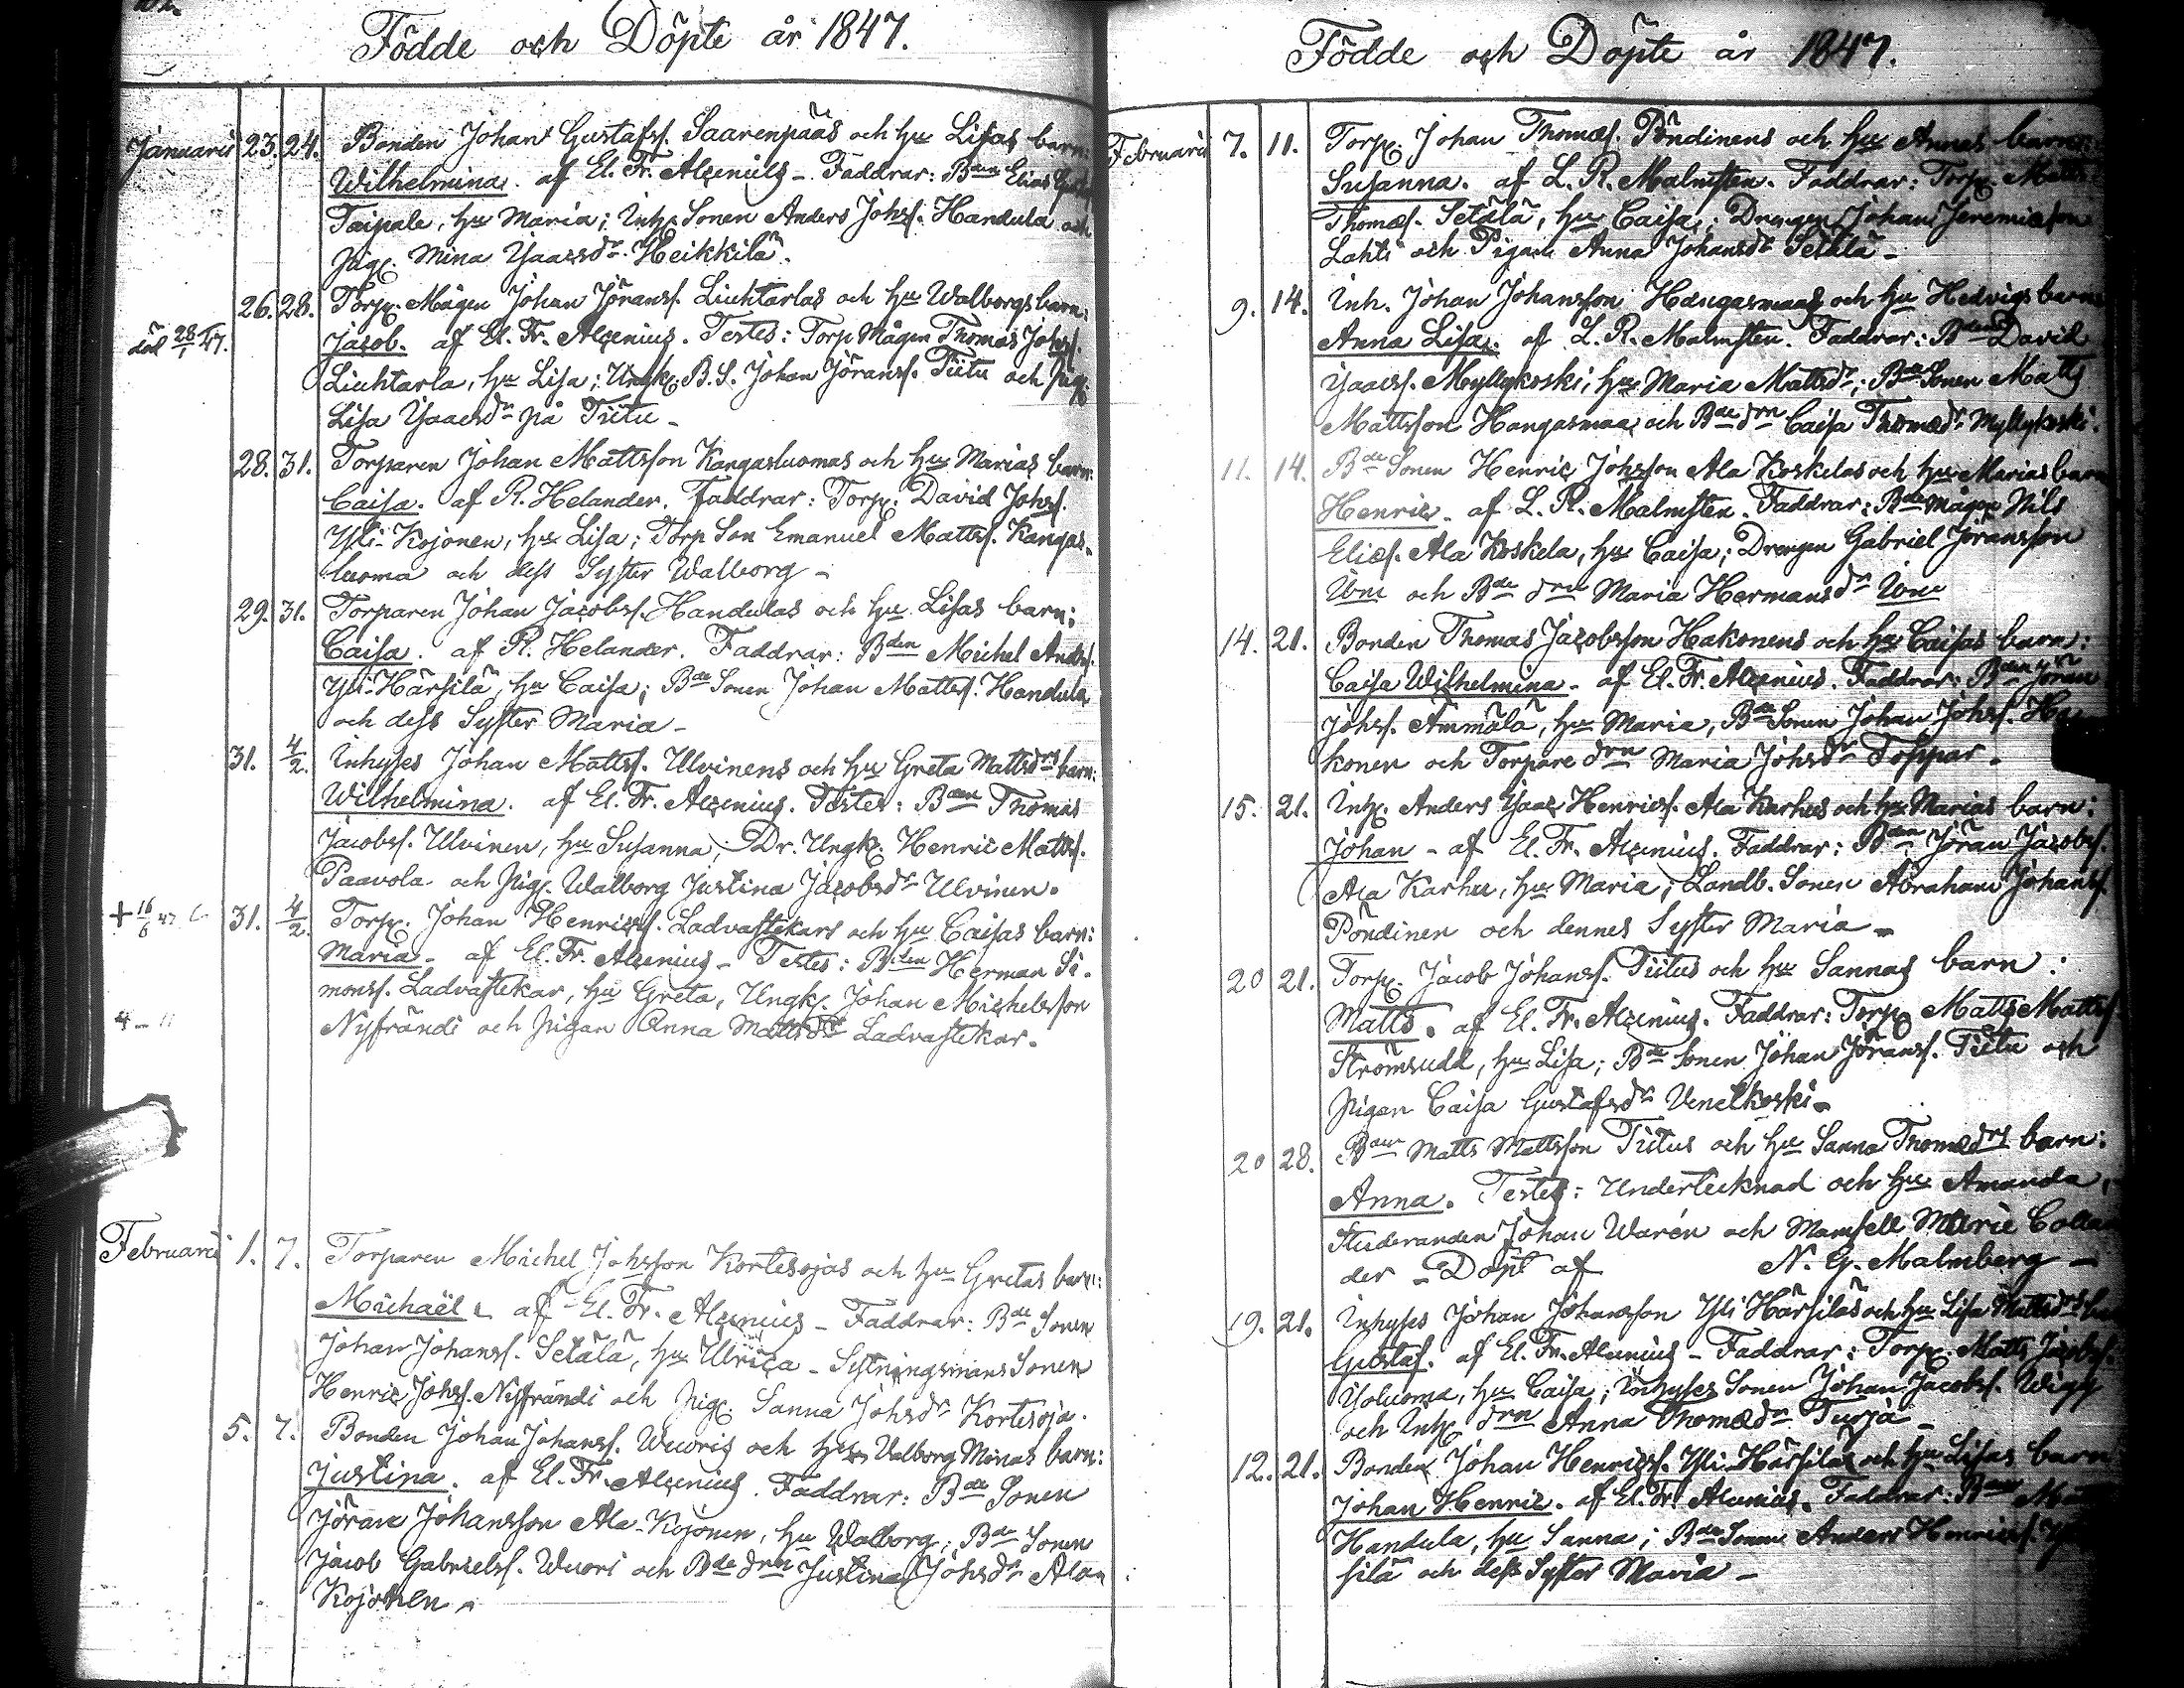 Födde och Döpte år 1847.
Januarii 23. 24. Bonden Johan Gustafsf. Saarenpääs och hu Lisas barn:
Wilhelmina. af El. Fr. Alcenius – Faddrar: Bden Elias
Taipale, hu Maria; Inh. Sonen Anders Johsf. Handula och
Pig. Mina Isaacsdr Heikkilä.
26. 28. Torp. Mågen Johan Jöransf. Liuhtarlas och hu Walborgs barn:
död 28/1 47. Jacob. af El. Fr. Alcenius. Testes: Torp Mågen Thomas Johsf.
Liuhtarla, hu Lisa; Ungk. B. S. Johan Jöransf. Tiitu och Pig.
Lisa Isaacsdr på Tiitu –
28. 31. Torparen Johan Mattsson Kangasluomas och hu Marias barn:
Caisa. af R. Helander. Faddrar: Torp. David Johsf.
Yli-Kojonen, hu Lisa; Torp Son Emanuel Mattsf. Kangas-
luoma och dess Syster Walborg –
29. 31. Torparen Johan Jacobsf. Handulas och hu Lisas barn:
Caisa. af R. Helander. Faddrar: Bden Michel Andersf.
Yli-Härsilä, hu Caisa; Bde Sonen Johan Mattsf. Handula
och dess Syster Maria –
31. 4/2. Inhyses Johan Mattsf. Ulvinens och hu Greta Mattsdrs barn:
Wilhelmina. af El. Fr. Alcenius. Testes: Bden Thomas
Jacobsf. Ulvinen, hu Susanna; Dr. Ungk. Henric Mattsf.
Paavola och Pig. Walborg Justina Jacobsdr Ulvinen.
+ 16/6 47 31. 4/2. Torp. Johan Henricsf. Ladvastekars och hu Caisas barn:
Maria – af El. Fr. Alcenius – Testes: Bden Herman Si-
monsf. Ladvastekar, hu Greta, Ungk. Johan Michelsson
Nyfrändi och Pigan Anna Mattsdr Ladvastekar.
Februarii 1. 7. Torparen Michel Johsson Kortesojas och hu Gretas barn:
Michaël. af El. Fr. Alcenius – Faddrar: Bde Sonen
Johan Johansf. Setälä, hu Ulrica – Sytningsmans Sonen
Henric Johsf. Nyfrändi och Pig. Sanna Johsdr Kortesoja.
5. 7. Bonden Johan Johansf. Wuoris och hu Valborg Marias barn:
Justina. af El. Fr. Alcenius. Faddrar: Bde Sonen
Jöran Johansson Ala-Kojonen, hu Walborg; Bde Sonen
Jacob Gabrielsf. Wuori och Bde drn Justina Johsdr Ala
Kojonen.
Födde och Döpte år 1847.
Februarii 7. 11. Torp. Johan Thomæf. Pöndinens och hu Annas barn:
Susanna. af L. R. Malmsten. Faddrar: Torp. Matts
Thomæf. Setälä, hu Caisa; Drengen Johan Jeremiæson
Lahti och Pigan Anna Johansdr Setälä –
9. 14. Inh. Johan Johansson Hangasmaas och hu Hedvigs barn
Anna Lisa. af L. R. Malmsten. Faddrar: Bden David
Isaacsf. Myllykoski, hu Maria Mattsdr; Bde Sonen Matts
Mattsson Hangasmaa och Bde drn Caisa Thomædr Myllykoski.
11. 14. Bde Sonen Henric Johsson Ala Koskelas och hu Marias barn
Henric. af L. R. Malmsten. Faddrar: Bde mågen Nils
Eliæf. Ala Koskela, hu Caisa; Drengen Gabriel Jöransson
och Bde drn Maria Hermansdr
14. 21. Bonden Thomas Jacobsson Hakonens och hu Caisas barn:
Caisa Wilhelmina – af El. Fr. Alcenius. Faddrar: Bden Jöran
Johsf. Ämmälä, hu Maria, Bde Sonen Johan Johsf. Ha-
konen och Torpare drn Maria Johsdr Toppar –
15. 21. Inh. Anders Isaac Henricsf. Ala Karhus och hu Marias barn:
Johan – af El. Fr. Alcenius. Faddrar: Bden Jöran Jacobsf.
Ala Karhu, hu Maria; Landb. Sonen Abraham Johansf.
Pöndinen och dennes Syster Maria –
20 21. Torp. Jacob Johansf. Tiitus och hu Sannas barn:
Matts. af El. Fr. Alcenius. Faddrar: Torp Matts Mattsf.
Strömsudd, hu Lisa; Bde Sonen Johan Jöransf. Tiitu och
Pigan Caisa Gustafsdr Venetkoski –
20 28. Bden Matts Mattsson Tiitus och hu Sanna Thomædrs barn:
Anna. Testes: Undertecknad och hu Amanda,
Studeranden Johan Warén och Mamsell Marie
der – Döpt af N. G. Malmberg –
19. 21. Inhyses Johan Johansson Yli Härsiläs och hu Lisa Mattsdrs
Gustaf. af El. Fr. Alcenius – Faddrar: Torp. Matts Jacobsf.
Isoluoma, hu Caisa; Inhyses Sonen Johan Jacobsf.
och Inh drn Anna Thomædr Turja –
12. 21. Bonden Johan Henricsf. Yli-Härsiläs och hu Lisas barn
Johan Henric. af El. Fr. Alcenius. Faddrar: Bden
Handula, hu Sanna; Bde Sonen Anders Henricsf.
silä och dess Syster Maria –